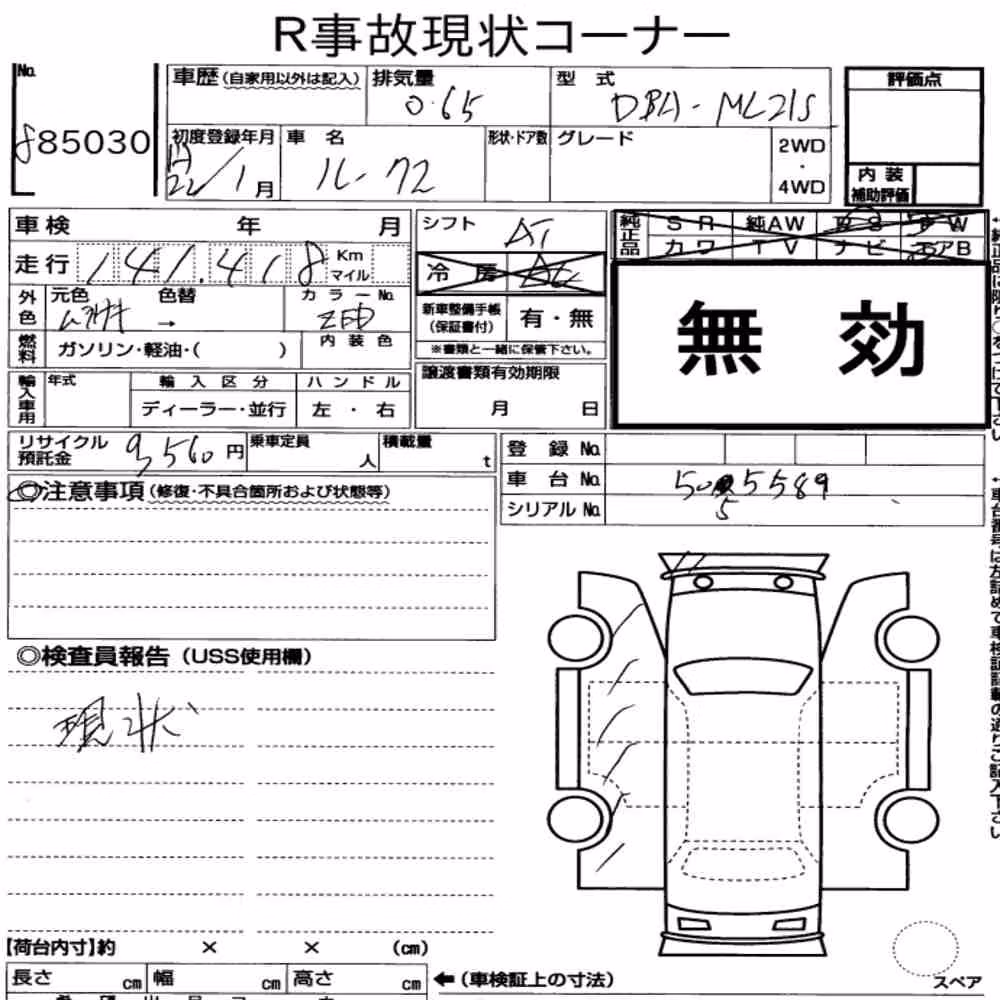 R事故現状コーナー
No.
85030
車歴(自家用以外は記入)
排気量
0.65
型 式
DBA-ML21S
評価点
初度登録年月
22/1月
車 名
ルークス
形状・ドア数
グレード
2WD
・
4WD
内 装
補助評価
車検 年 月
シフト
AT
純正品
SR 純AW PS PW
カワ TV ナビ エアB
走行 141,418 Km マイル
冷 房 AC
外色
元色 色替
ムラサキ →
カラーNo.
ZED
新車整備手帳
(保証書付)
有・無
※書類と一緒に保管下さい。
無 効
燃料
ガソリン・軽油・( )
内 装 色
輸入車用
年式
輸 入 区 分
ディーラー・並行
ハ ン ド ル
左 ・ 右
譲渡書類有効期限
月 日
リサイクル
預託金
9,560円
乗車定員
人
積載量
t
登 録 No.
車 台 No.
シリアル No.
5 5589
◎注意事項(修復・不具合箇所および状態等)
◎検査員報告(USS使用欄)
現状
【荷台内寸】約 × × (cm)
長さ cm 幅 cm 高さ cm
←(車検証上の寸法)
スペア